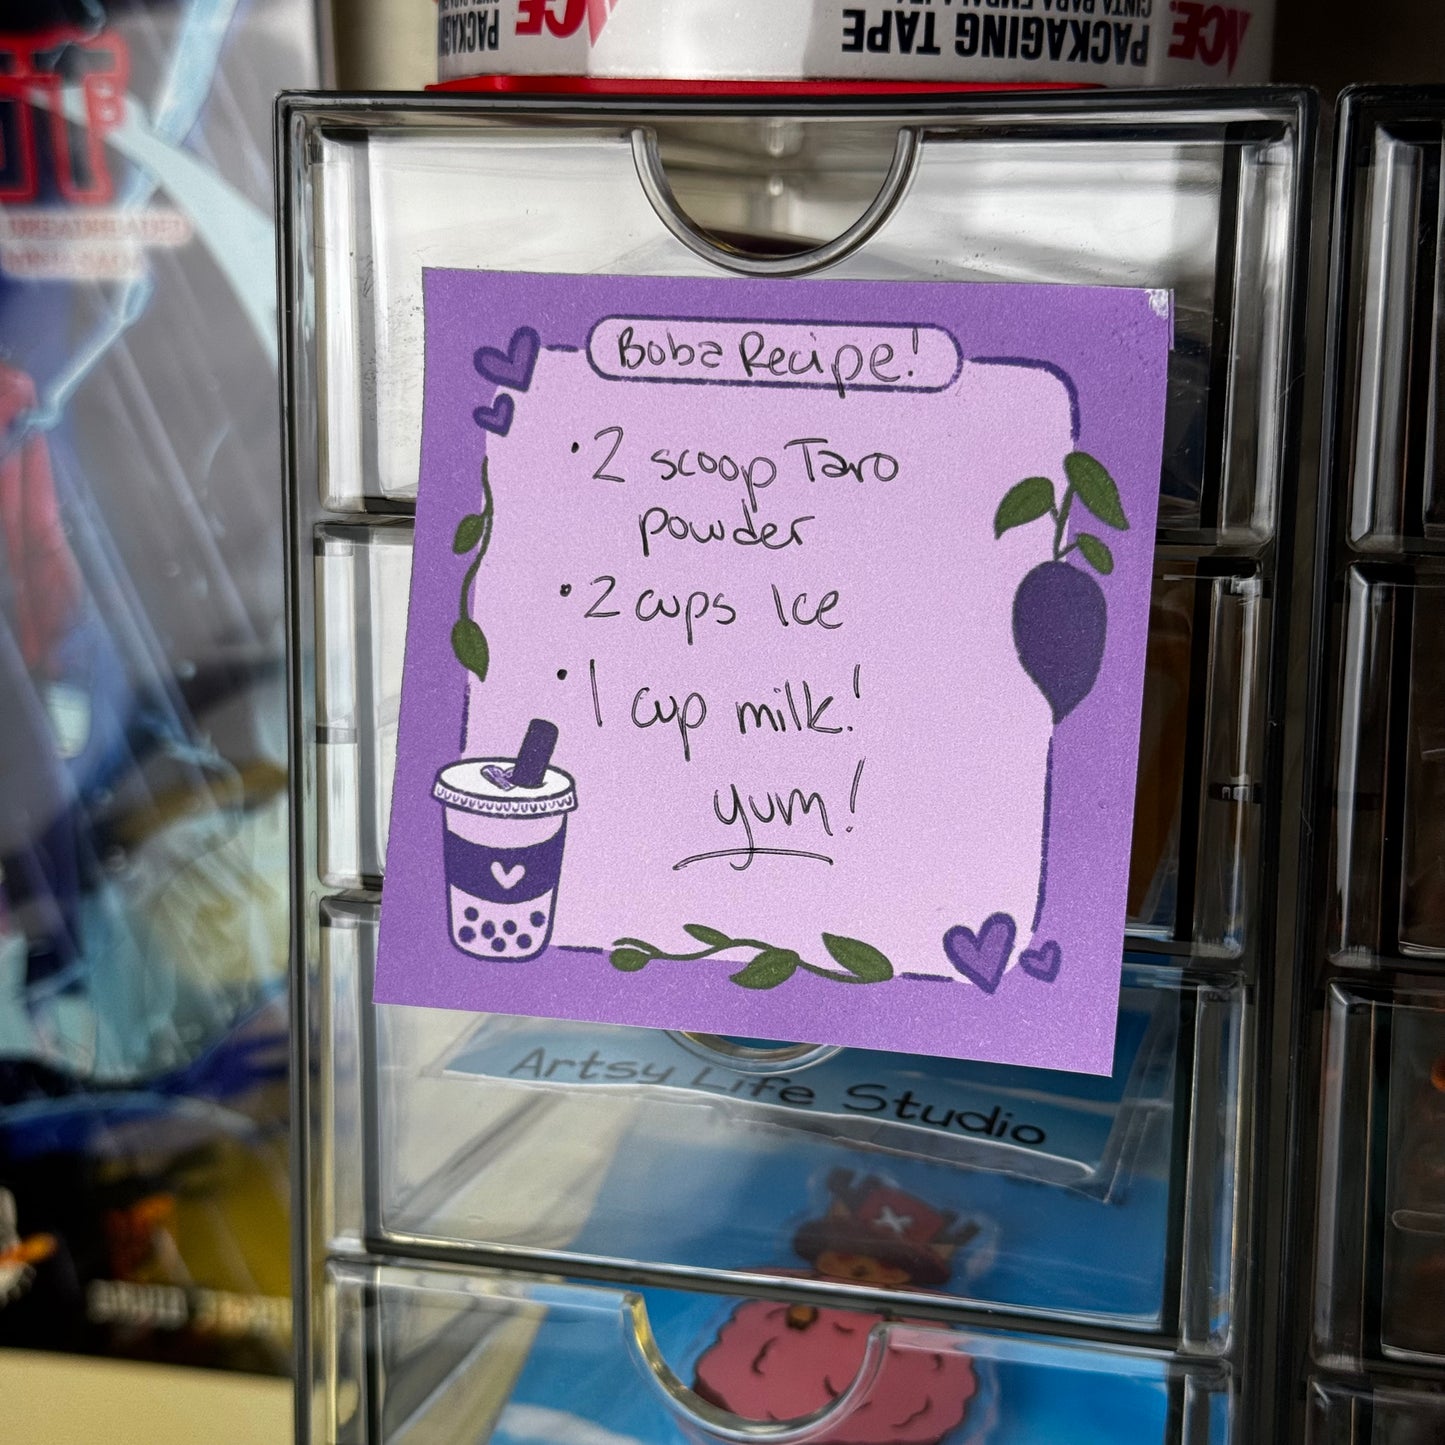 PACKAGING TAPE
ACE
Boba Recipe!
• 2 scoop Taro
powder
• 2 cups Ice
• 1 cup milk!
yum!
Artsy Life Studio